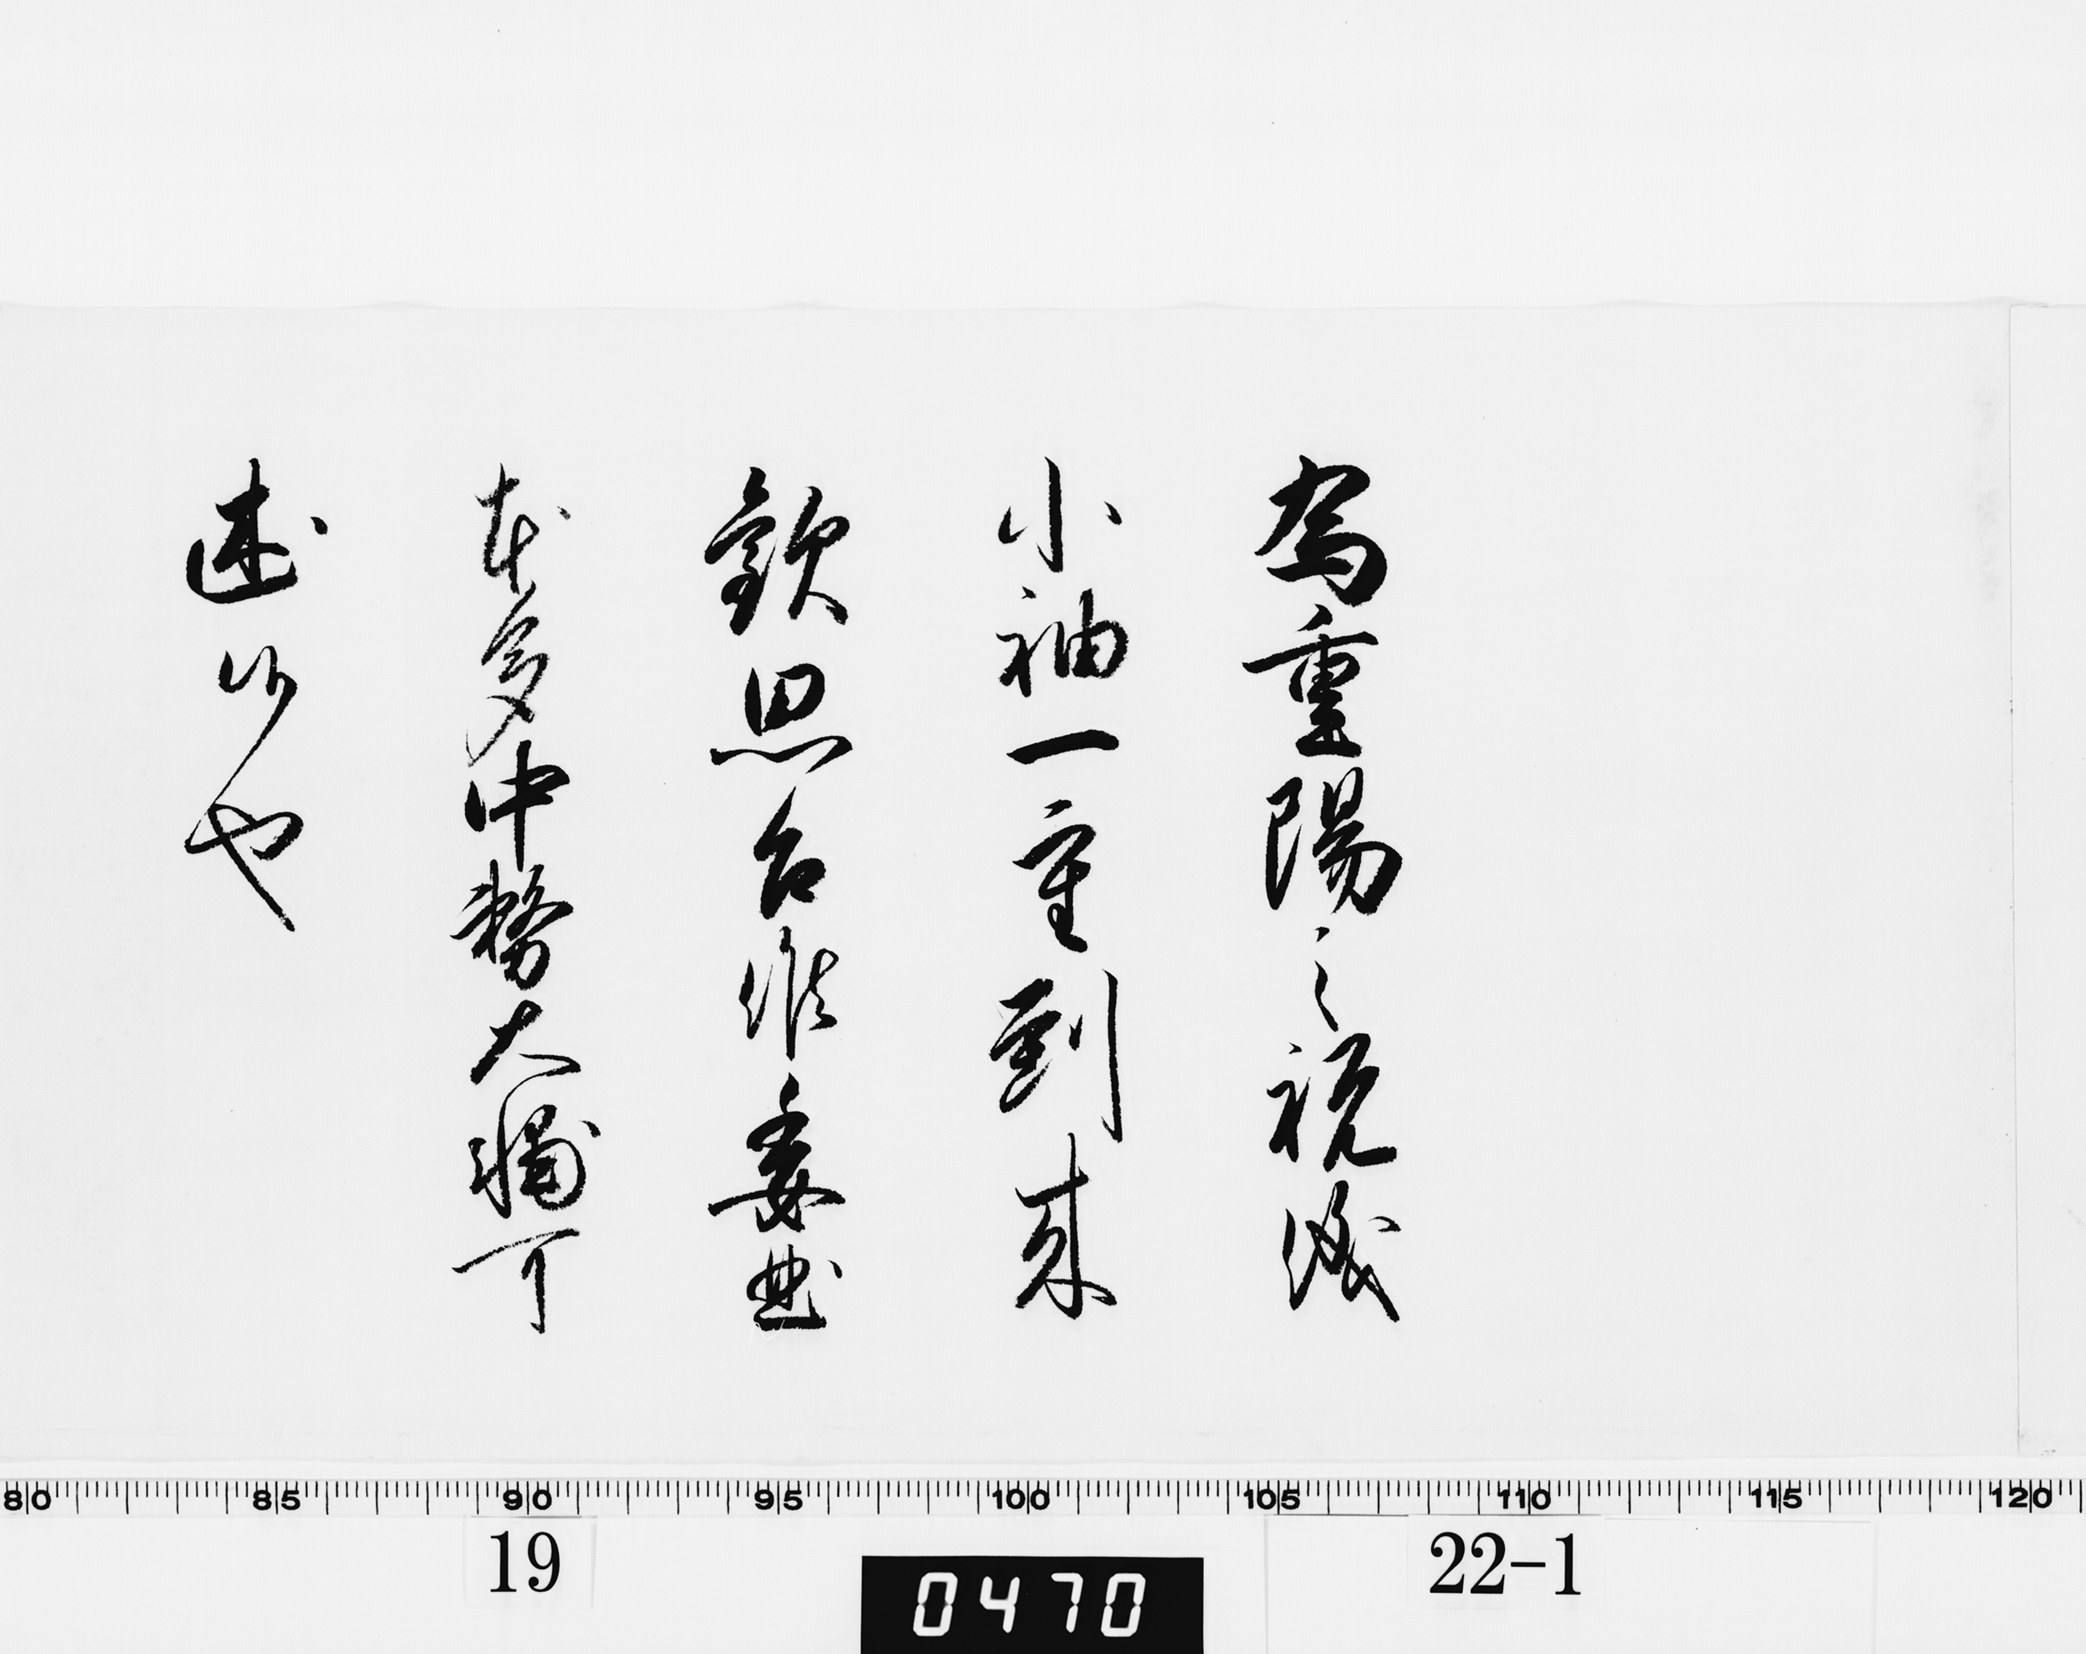 為重陽之祝儀
小袖一重到来
歓思召候委曲
本多中務大輔可
述候也
80 85 90 95 100 105 110 115 120
19
0470
22-1